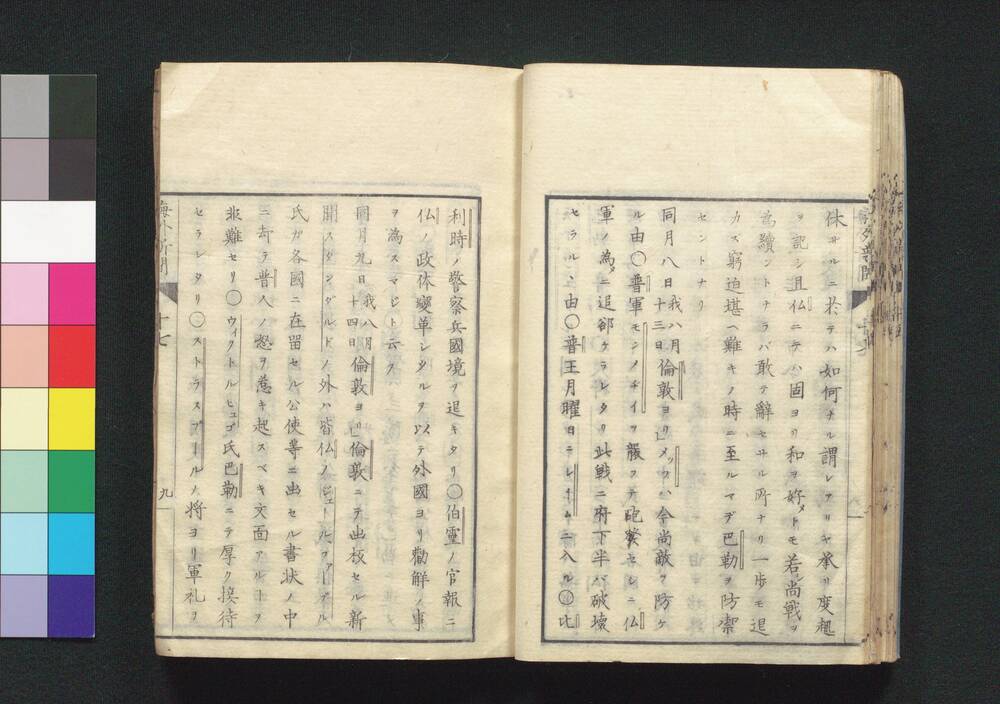 休サルニ於テハ如何ナル謂レアリヤ承リ度趣
ヲ記シ且仏ニテハ固ヨリ和ヲ好メトモ若シ尚戦ヲ
為續ントナラバ敢テ辭セサル所ナリ一歩モ退
カズ窮迫堪ヘ難キノ時ニ至ルマデ巴勒ヲ防禦
セントナリ
同月八日我八月十三日倫敦ヨリ」メッツハ今尚敵ヲ防ケ
ル由○普軍モンメヂイヲ襲フテ砲発セシニ仏
軍ノ為メニ追郤ケラレタリ此戦ニ府下半バ破壊
セラルヽ由○普王月曜日ニレイームニ入ル○比
利時ノ警察兵國境ヲ退キタリ○伯靈ノ官報ニ
仏ノ政体變革シタルヲ以テ外國ヨリ勸解ノ事
ヲ為スマジト云フ
同月九日我八月十四日倫敦ヨリ」倫敦ニテ出板セル新
聞スタンダルドノ外ハ皆仏ノジュールファーブル
氏ガ各國ニ在留セル公使等ニ出セル書状ノ中
ニ却テ普人ノ怒ヲ惹キ起スベキ文面アルトヲ
非難セリ○ウィクトルヒュゴ氏巴勒ニテ厚ク接待
セラレタリ○ストラスブールノ大将ヨリ軍礼ヲ
海外新聞
十七
九